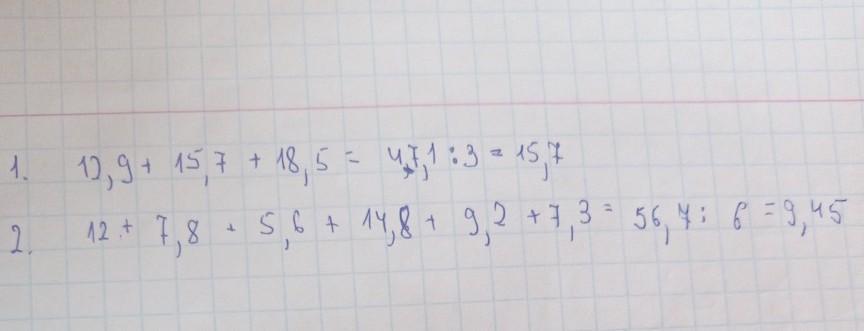 1. 12,9 + 15,7 + 18,5 = 47,1 : 3 = 15,7
2. 12 + 7,8 + 5,6 + 14,8 + 9,2 + 7,3 = 56,7 : 6 = 9,45